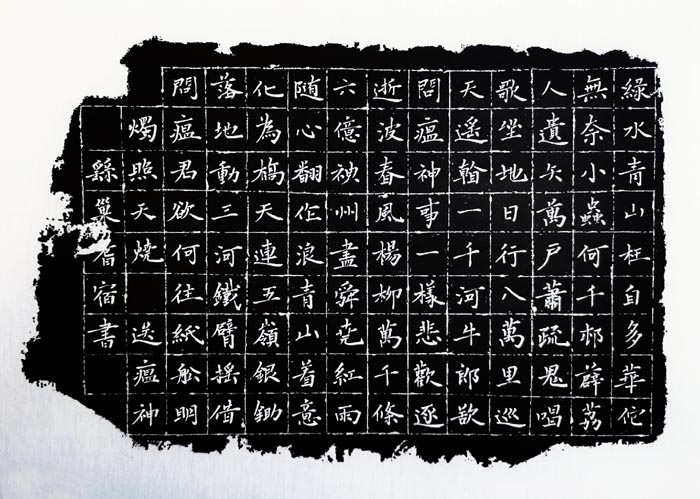 綠水青山枉自多華佗
無奈小蟲何千邨薜荔
人遺矢萬戶蕭疏鬼唱
歌坐地日行八萬里巡
天遥翰一千河牛郎欲
問瘟神事一樣悲歡逐
逝波春風楊柳萬千條
六億神州盡舜堯紅雨
随心翻作浪青山着意
化為橋天連五嶺銀鋤
落地動三河鐵臂搖借
問瘟君欲何往紙船明
燭照天燒 送瘟神
巢宿書